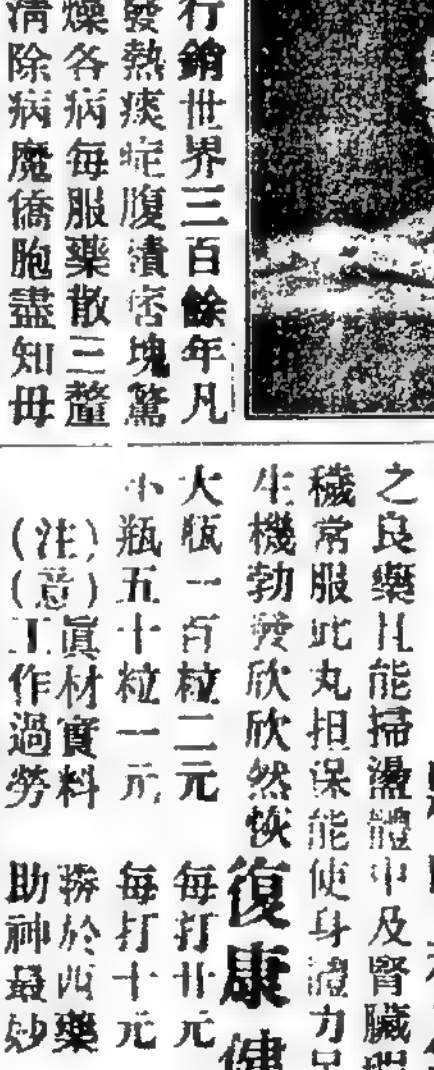 行銷世界三百餘年凡
發熱痰症腹瀆痞塊驚
燥各病每服藥散三釐
清除病魔僑胞盡知毋
之良藥且能掃盪體中及腎臟
穢常服此丸担保能使身體力
生機勃發欣欣然恢
復康健
大瓶一百粒二元 每打廿元
小瓶五十粒一元 每打十元
(注)眞材實料 勝於西藥
(意)工作過勞 助神最妙